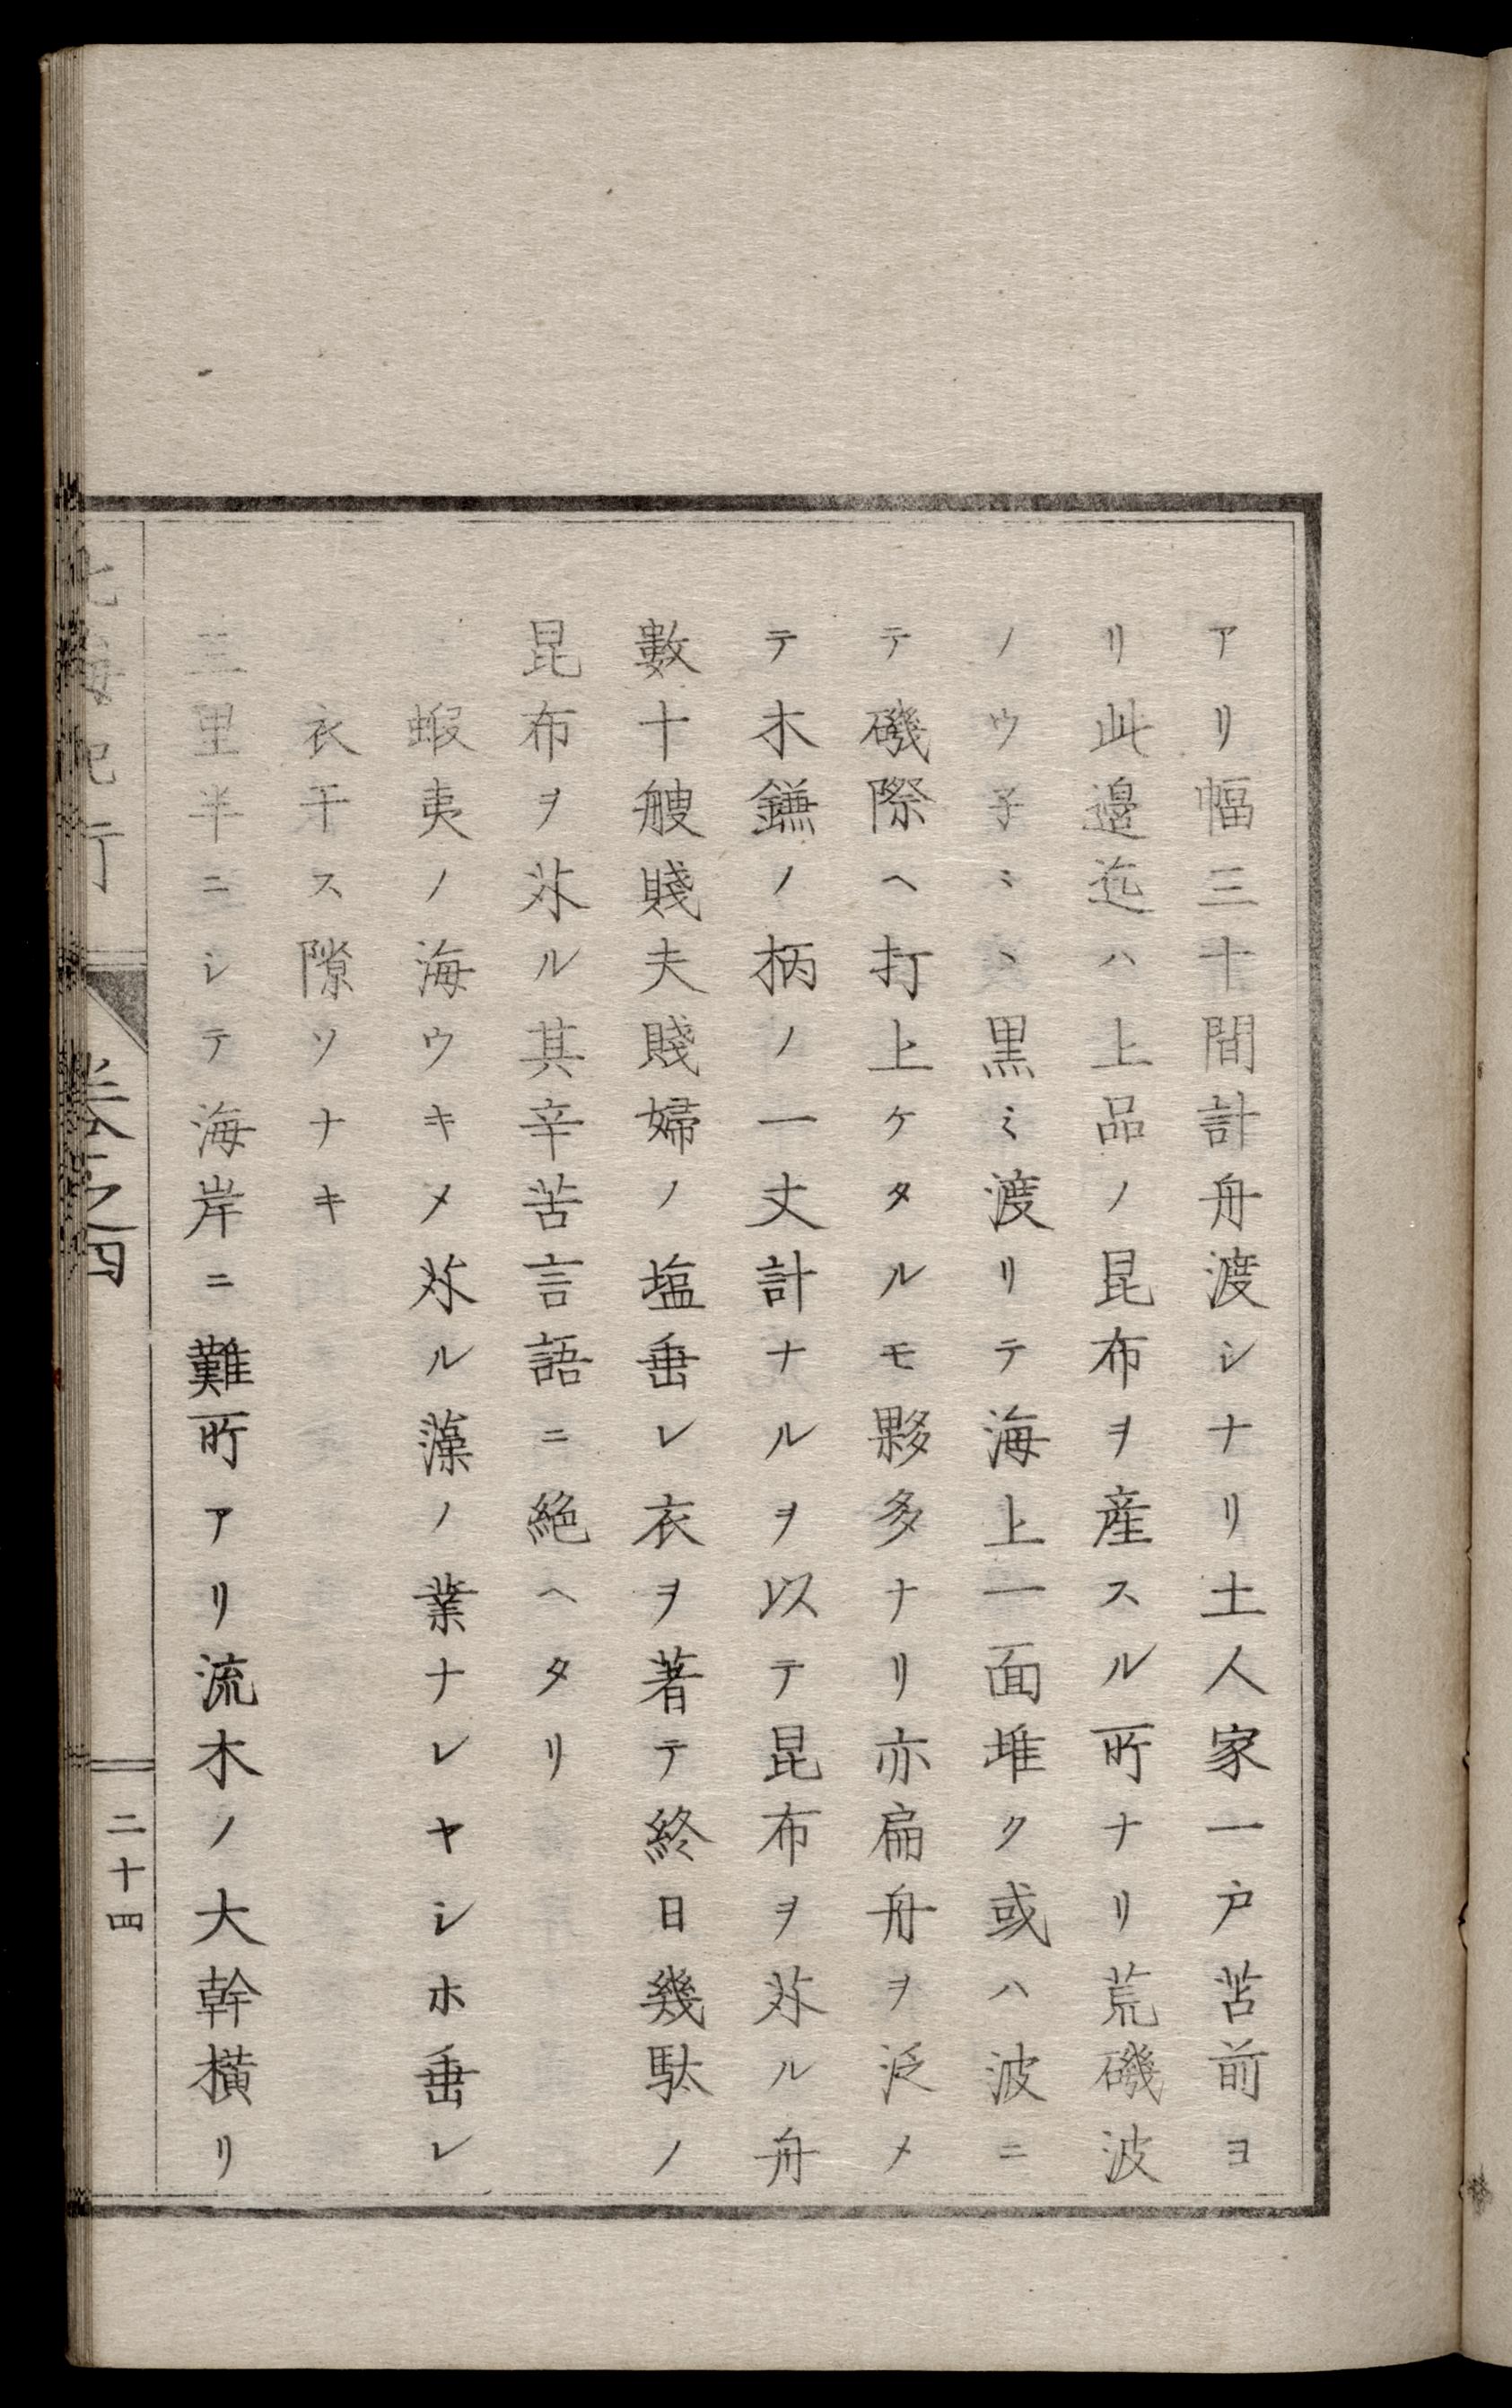 アリ幅三十間計舟渡シナリ土人家一戸苫前ヨ
リ此邉迄ハ上品ノ昆布ヲ産スル所ナリ荒磯波
ノウ子ミヽ黒ミ渡リテ海上一面堆ク或ハ波ニ
テ磯際ヘ打上ケタルモ夥多ナリ亦扁舟ヲ泛メ
テ木鎌ノ柄ノ一丈計ナルヲ以テ昆布ヲ苅ル舟
數十艘賤夫賤婦ノ塩垂レ衣ヲ著テ終日幾駄ノ
昆布ヲ苅ル其辛苦言語ニ絶ヘタリ
蝦夷ノ海ウキメ苅ル藻ノ業ナレヤシホ垂レ
衣干ス隙ソナキ
三里半ニシテ海岸ニ難所アリ流木ノ大幹横リ
北海紀行
卷之四
二十四